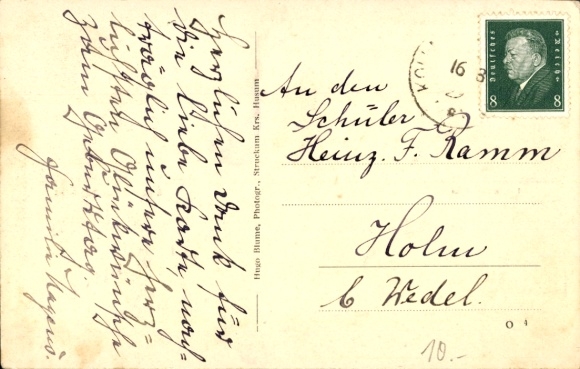 Herzlichen Dank für
die liebe Karte nach-
träglich unsere herz-
lichsten Glückwünsche
zum Geburtstag
Familie Magens.
Hugo Blume, Photogr., Struckum Krs. Husum
Deutsches Reich
8 8
16 8
An den
Schüler
Heinz. F. Ramm
Holm
b Wedel.
10.-